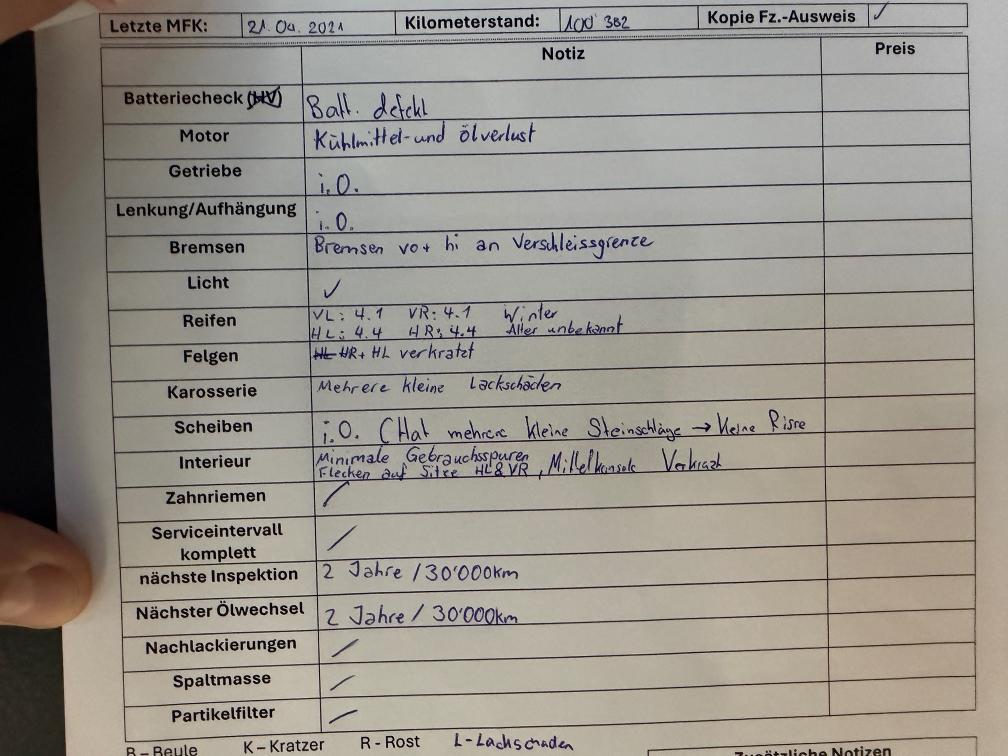 Letzte MFK: 21.04.2021 Kilometerstand: 100'382 Kopie Fz.-Ausweis ✓
Notiz Preis
Batteriecheck (HV) Batt. defekt
Motor Kühlmittel- und ölverlust
Getriebe i.O.
Lenkung/Aufhängung i.O.
Bremsen Bremsen vo + hi an Verschleissgrenze
Licht ✓
Reifen VL: 4.1 VR: 4.1 Winter
HL: 4.4 HR: 4.4 Alter unbekannt
Felgen HL HR + HL verkratzt
Karosserie Mehrere kleine Lackschäden
Scheiben i.O. (Hat mehrere kleine Steinschläge → Keine Risse
Interieur Minimale Gebrauchsspuren
Flecken auf Sitze HL & VR, Mittelkonsole Verkrazt
Zahnriemen /
Serviceintervall
komplett /
nächste Inspektion 2 Jahre / 30'000km
Nächster Ölwechsel 2 Jahre / 30'000km
Nachlackierungen /
Spaltmasse /
Partikelfilter /
B – Beule K – Kratzer R - Rost L - Lackschaden
Zusätzliche Notizen